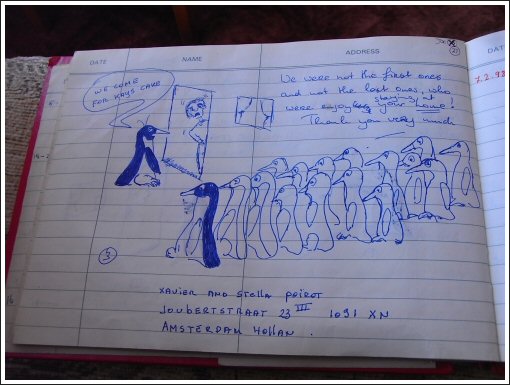 DATE NAME ADDRESS DAT
(21)
7.2.98
We were not the first ones
and not the last ones, who
staying at
were enjoying your home!
Thank you very much
WE COME
FOR KAYS CAKE
3
XAVIER AND STELLA POIROT
JOUBERTSTRAAT 23 III 1091 XN
AMSTERDAM HOLLAN.